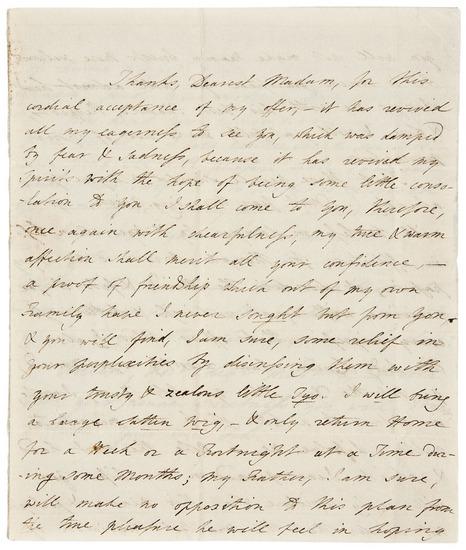 Thanks, Dearest Madam, for this
cordial acceptance of my offer, – it has revived
all my eagerness to see you, which was damped
by fear & sadness, because it has revived my
spirits with the hope of being some little conso-
lation to you. I shall come to you, therefore,
once again with chearfulness, my true & warm
affection shall merit all your confidence, –
a proof of friendship which out of my own
Family have I never sought but from you,
& you will find, I am sure, some relief in
your perplexities by discussing them with
your trusty & zealous little Tyo. I will bring
a large wig, – & only return Home
for a Week or a Fortnight at a Time dur-
ing some Months; my Father, I am sure,
will make no opposition to this plan from
the true pleasure he will feel in hoping